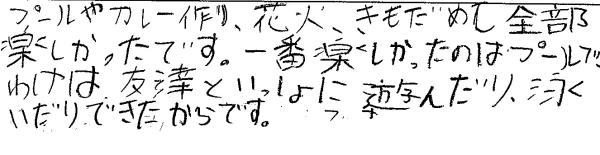 プールやカレー作り、花火、きもだめし全部
楽しかったです。一番楽しかったのはプールで
わけは、友達といっしょに遊んだり、泳
いだりできたからです。